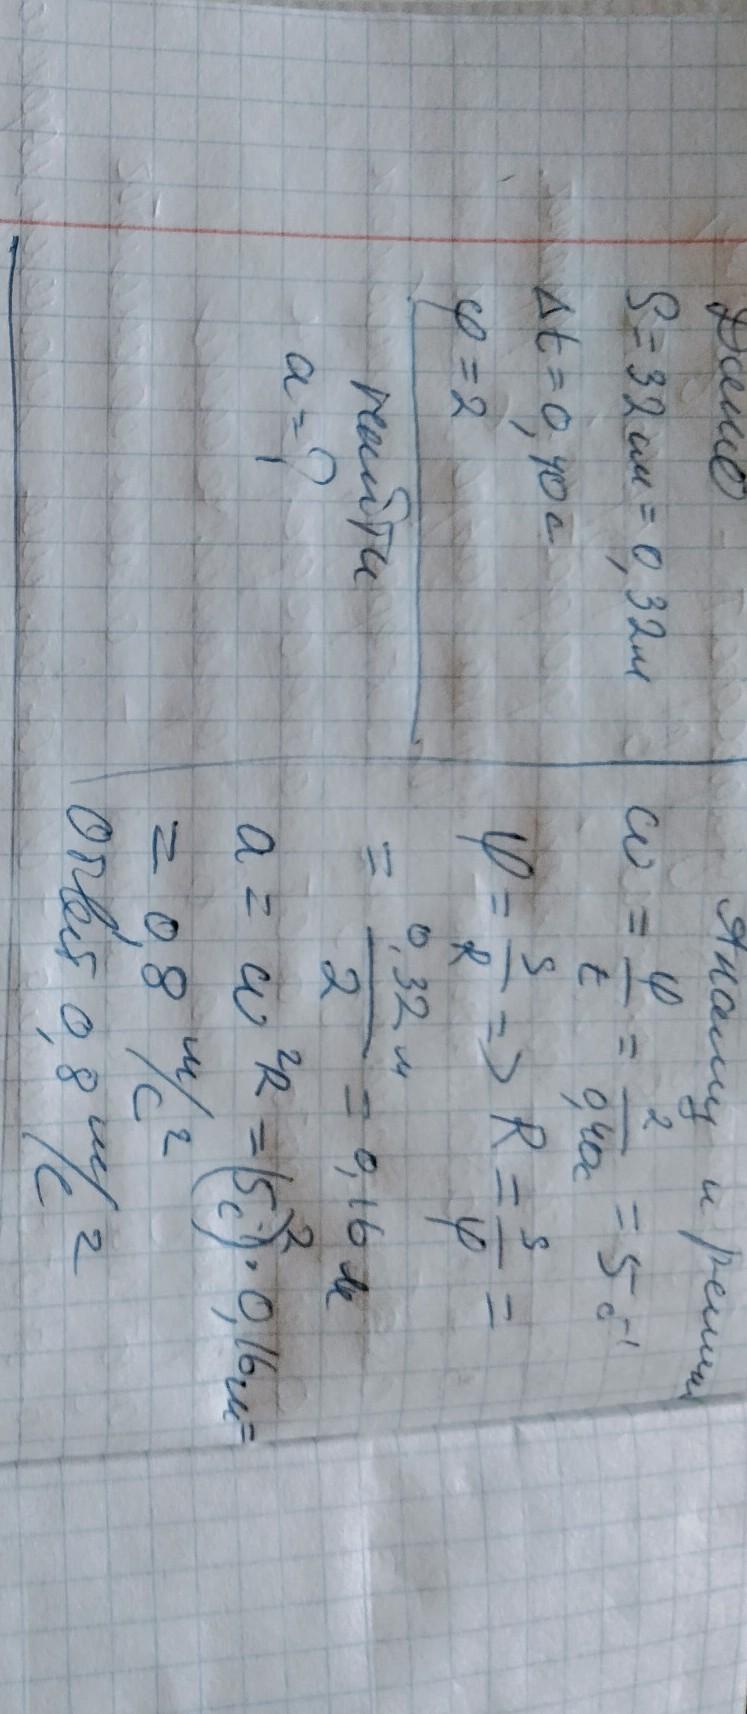 Дано
S=32см=0,32м
Δt=0,40с
φ=2
найти
a=?
Анализ и решение
ω = φ/t = 2/0,40с = 5 с⁻¹
φ = S/R => R = S/φ =
= 0,32м/2 = 0,16 м
a = ω²R = (5с⁻¹)²·0,16м=
= 0,8 м/с²
Ответ 0,8 м/с²